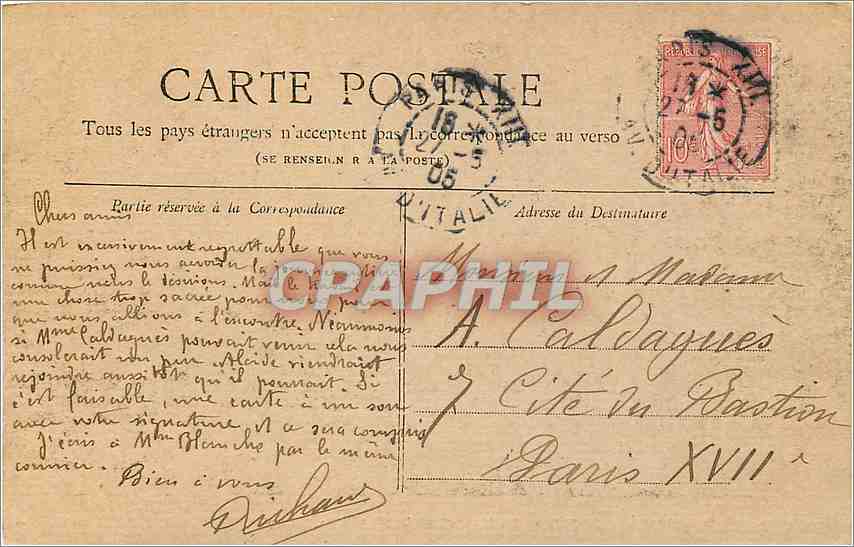 CARTE POSTALE
Tous les pays étrangers n'acceptent pas la correspondance au verso
(SE RENSEIGNER A LA POSTE)
Partie réservée à la Correspondance
Chers amis
Il est excessivement regrettable que vous
ne puissiez nous accorder la journée
comme nous le désirions. Mais le travail
une chose trop sacrée pour
que nous allions à l'encontre. Néanmoins
si Mme Caldaguès pouvait venir cela nous
consolerait un peu Alcide viendrait
rejoindre aussitôt qu'il pourrait. Si
c'est faisable, une carte à un sou
avec votre signature et ce sera compris
J'écris à Mme Blanche par le même
courrier.
Bien à vous
Adresse du Destinataire
Monsieur et Madame
A. Caldaguès
7 Cité du Bastion
Paris XVII e
PARIS XIII
18 *
27 - 5
05
AV. D'ITALIE
REPUBLIQUE FRANÇAISE
10
PARIS XIII
18 *
27 - 5
05
AV. D'ITALIE
CPRAPHIL